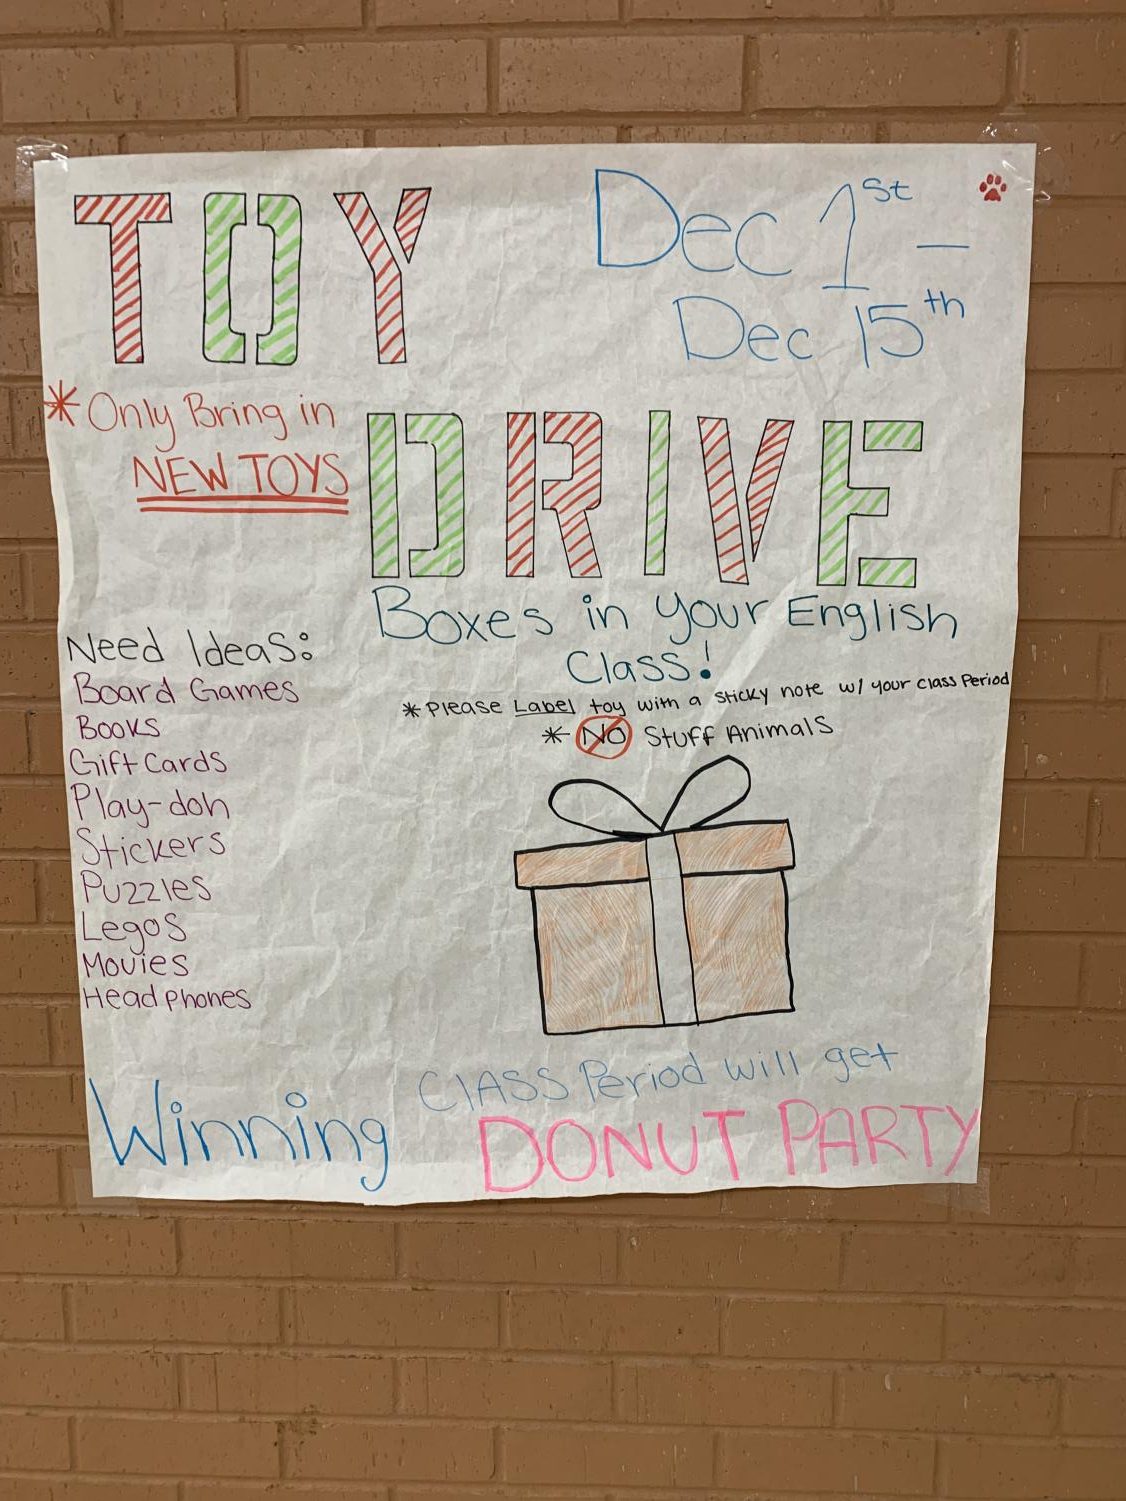 TOY
Dec 1st –
Dec 15th
* Only Bring in
NEW TOYS
DRIVE
Boxes in your English
Class!
* Please Label toy with a sticky note w/ your class Period
* NO Stuff Animals
Need Ideas:
Board Games
Books
Gift Cards
Play-doh
Stickers
Puzzles
Legos
Movies
Headphones
Winning Class Period will get
DONUT PARTY